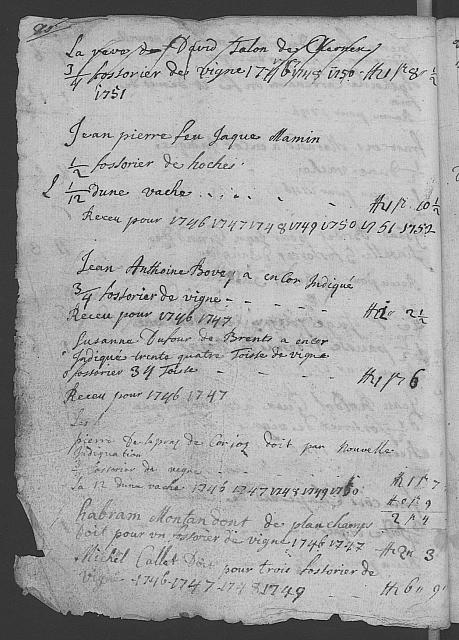 La veve de David Talon de Chernex
3/4 fossorier de vigne 1746 1748 1750 H 1 ſ 8 1/2
1751
Jean pierre feu Jaque Mamin
1/2 fossorier de hoches
L 1/12 dune vache H 1 ſ 10 1/2
Receu pour 1746 1747 1748 1749 1750 1751 1752
Jean Anthoine Bovey a encor Indiqué
3/4 fossorier de vigne
Receu pour 1746 1747 2 1/2
Susanne Dufour de Brents a encor
Indiqué trente quatre Toise de vigne
fossorier 34 Toise H 1 ſ 6
Receu pour 1746 1747
pierre Delapraz de doit par nouvelle
Indiquation
fossorier de vigne H 1 ſ 7
la 12 dune vache 1746 1747 1748 1749 1750 H 0 ſ 9
2 ſ 4
habram Montandont de planchamps
Doit pour un fossorier de vigne 1746 1747 H 2 3
Michel Callet Doit pour trois fossorier de
vigne 1746 1747 1748 1749 H 6 9